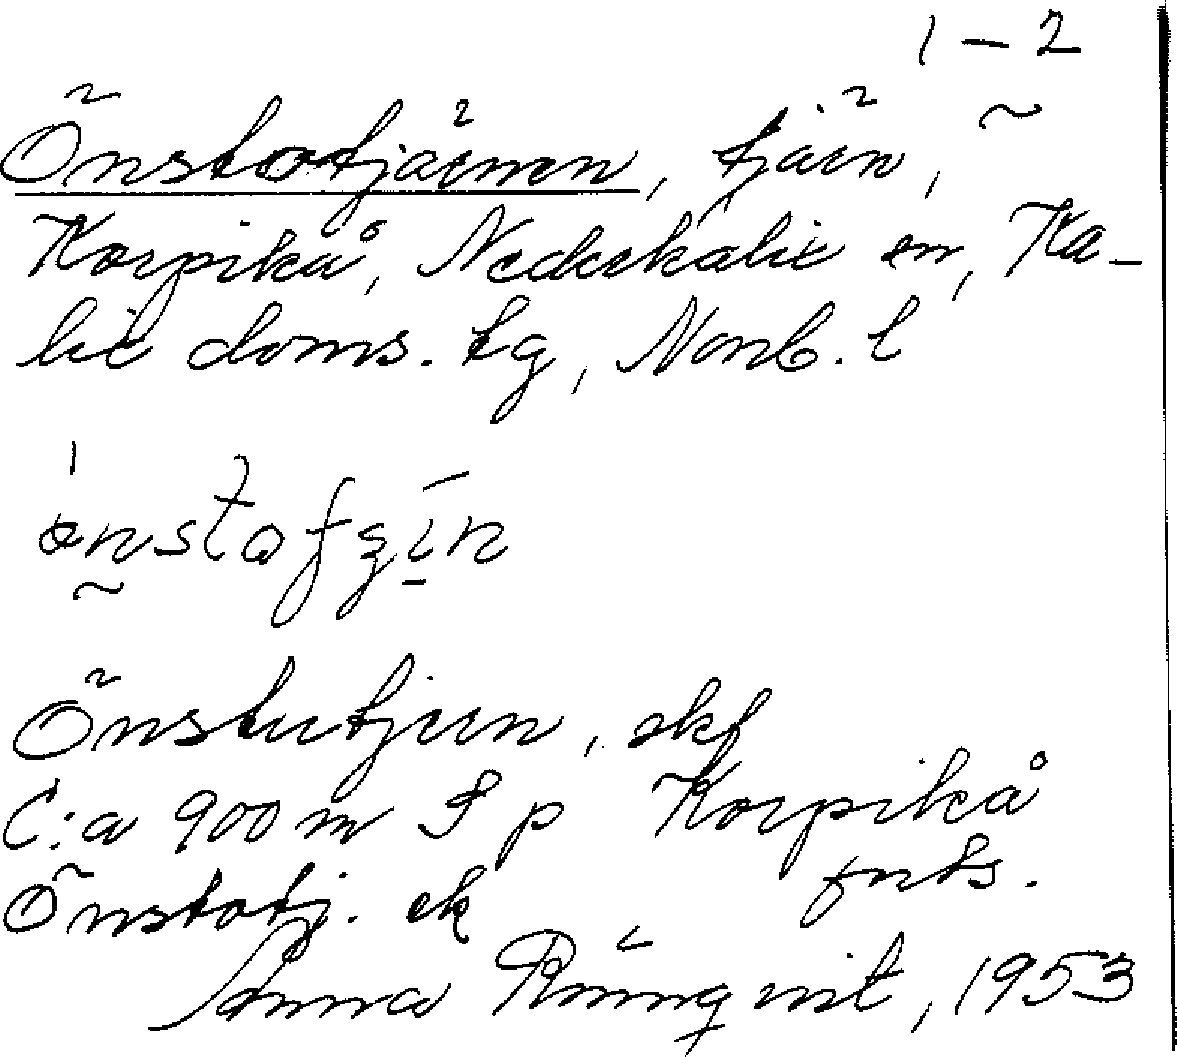 1-2
Önstotjärnen, tjärn,
Korpikå, Nederkalix sn, Ka-
lix doms. tg, Norrb. l
Önstutjern, ekf
C:a 900 m S p Korpikå
Önstotj. ek
Anna Rönnqvist, 1953